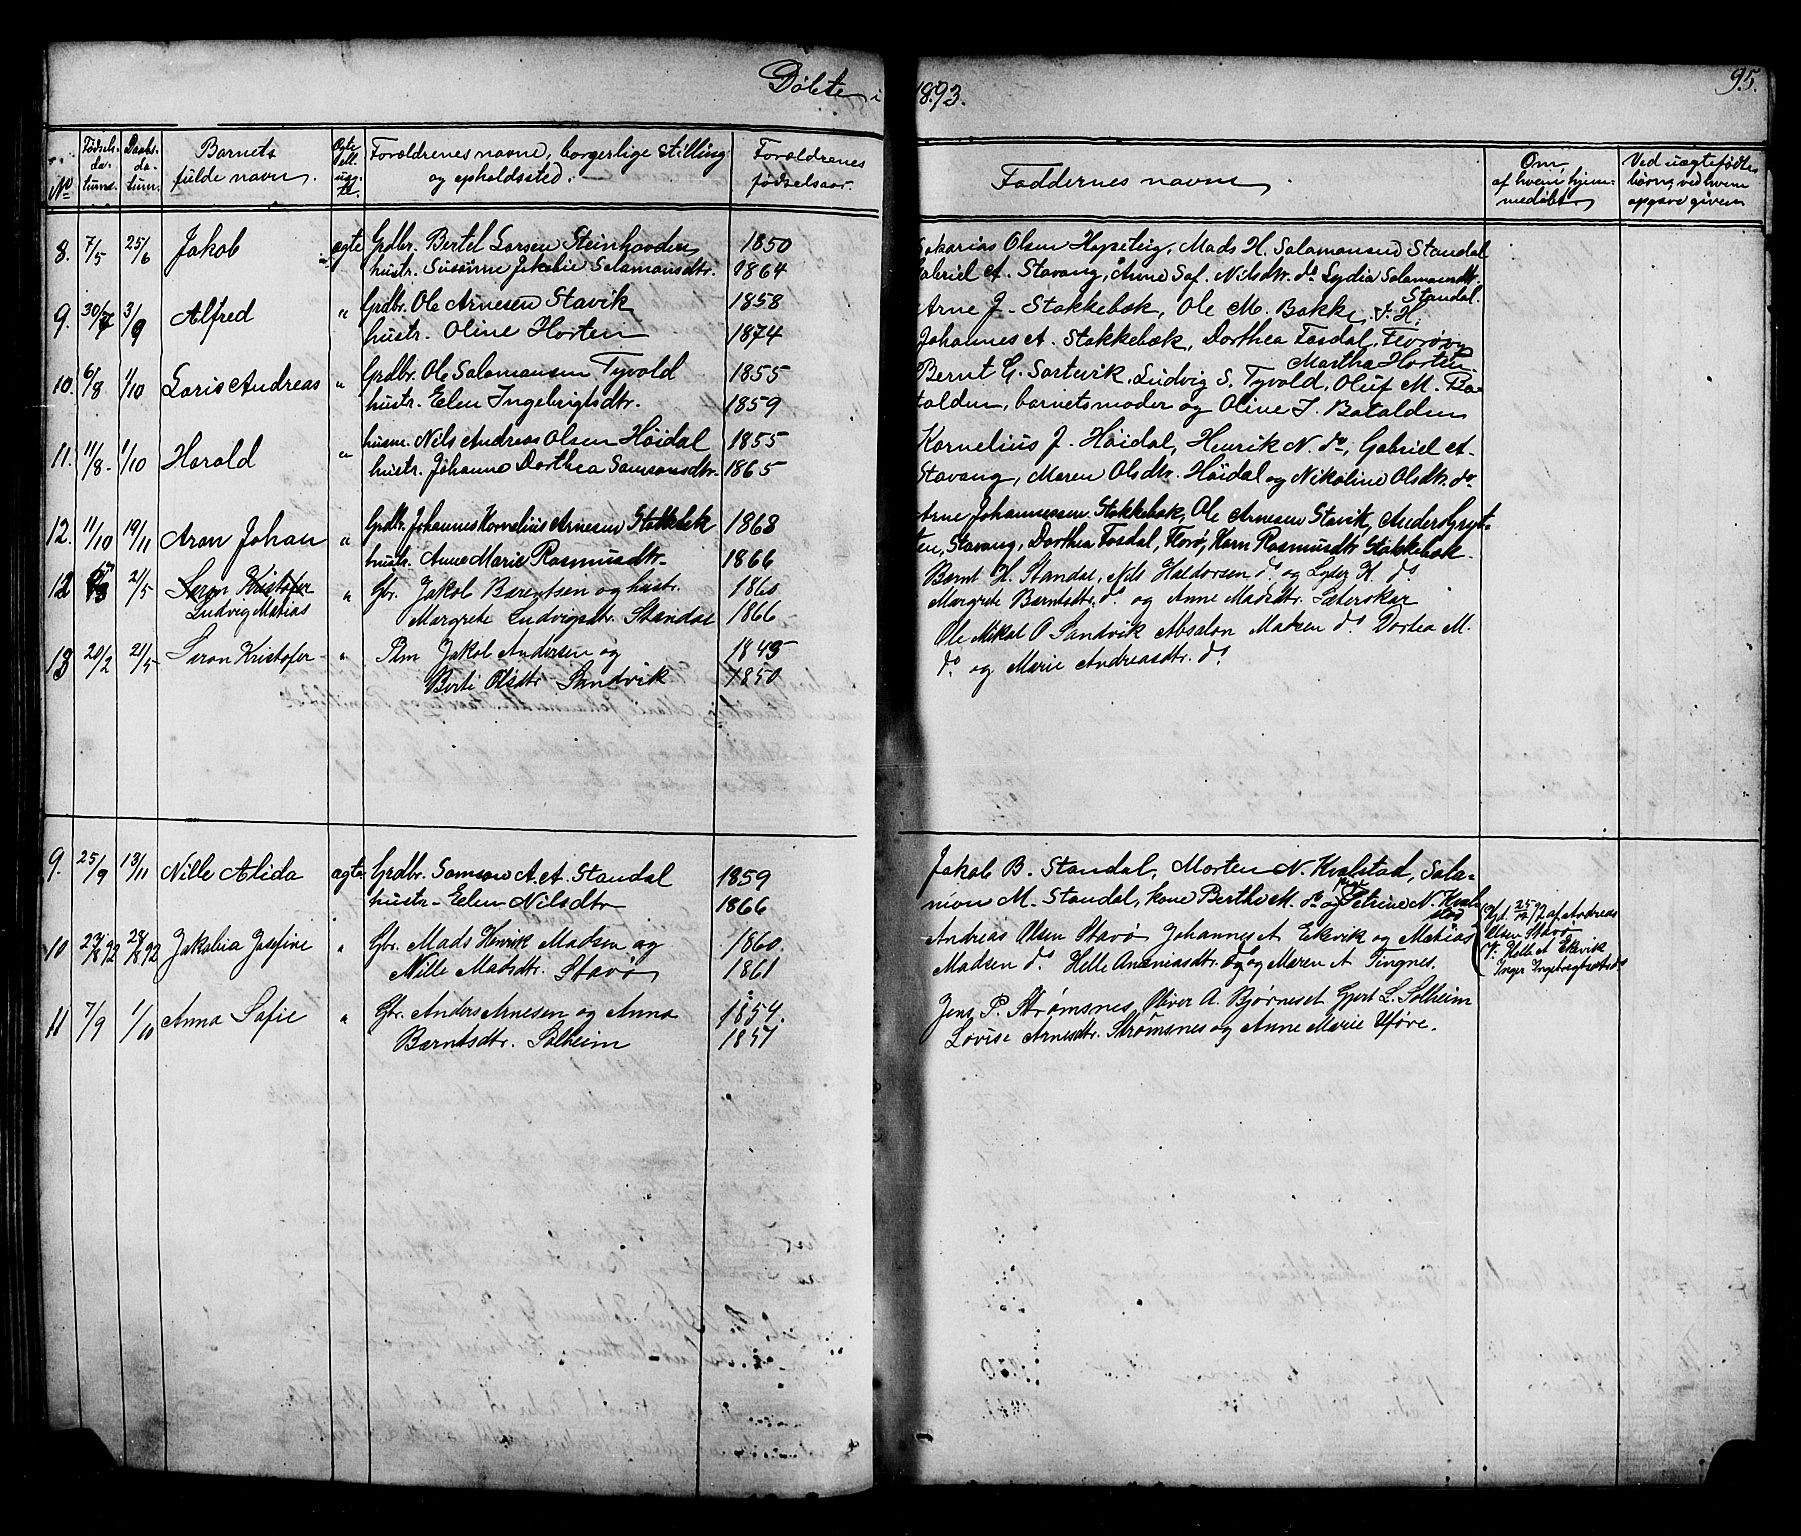 Døbte i 1893. 95.
No Fødselsdatum. Daabsdatum. Barnets fulde navn. Ægte ell. uægte. Forældrenes navne, borgerlige stilling og opholdssted. Forældrenes fødselsaar. Faddernes navne Om, af hvem hjemmedøbt Ved uægtefødte børn, ved hvem opgave given
8. 7/5 25/6 Jakob ægte Grdbr. Bertel Larsen Steinhovden 1850 Sakarias Olsen Hopeteig, Mads H. Salamonsen Standal
hustr. Susanne Jakobie Salamonsdtr. 1864 Gabriel A. Stavang, Anne Sof. Nilsdtr. do Lydia Salamonsdtr. Standal.
9. 30/7 3/9 Alfred " Grdbr. Ole Arnesen Stavik 1858 Arne J. Stokkebæk, Ole M. Bakke
hustr. Oline Horten 1874 Johannes A. Stokkebæk, Dorthea Fosdal, Florø, Martha Horten
10. 6/8 1/10 Laris Andreas " Grdbr. Ole Salamonsen Tyvold 1855 Bernt G. Sortevik, Ludvig S. Tyvold, Oluf M. Ba-
hustr. Elen Ingebrigtsdtr. 1859 talden, barnets moder og Oline J. Batalden
11. 11/8 1/10 Harald " husm. Nils Andreas Olsen Höidal 1855 Kornelius J. Höidal, Henrik N. do, Gabriel A.
hustr. Johanne Dorthea Samsonsdtr. 1865 Stavang, Maren Olsdtr. Höidal og Nikoline Olsdtr. do
12. 11/10 19/11 Aron Johan " Grdbr. Johannes Kornelius Arnesen Stokkbæk 1868 Arne Johannessen Stokkebæk, Ole Arnesen Stavik, Anders Gryt-
hustr. Anne Marie Rasmusdtr. 1866 ten, Stavang, Dorthea Fosdal, Florø, Karn Rasmusdtr Stokkebæk
12 21/5 Seron Kristofer " Gbr. Jakob Bærentsen og hustr. 1860 Bernt H. Standal, Nils Haldorsen do. og Lydey H. do.
Ludvig Matias Margrete Ludvigsdtr. Standal 1866 Margrete Berntsdtr. do. og Anne Madsdtr. Sæterskar
13 20/2 21/5 Seron Kristofer " Plm Jakob Andersen og 1845 Ole Mikal O Sandvik Absalon Madsen do Dortea M.
Berte Olsdtr Sandvik 1850 do og Marie Andreasdtr. do
9. 25/9 13/11 Nille Alida ægte Grdbr. Samson A. A. Standal 1859 Jakob B. Standal, Morten N. Kvalstad, Sala-
hustr. Elen Nilsdtr 1866 mon M. Standal, kone Berthe M. do og pige Petrine N. Kvalstad
10 23/8 92 28/8 92 Jakobia Josefine " Gbr. Mads Henrik Madsen og 1860 Andreas Olsen Stavø Johannes A Ekevik og Matias Hjd. 25/12 92 af Andreas Olsen Stavø
Nille Madsdtr. Stavø 1861 Madsen do Helle Ananiasdtr. do og Maren A Tingnes. V. Helle A Ekevik Inger Ingebrigtsdtr do
11 7/9 1/10 Anna Sofie " Gbr. Anders Arnesen og Anna 1854. Jens P. Strømsnes, Oliver A. Bjørneset Gjert L. Solheim
Bærntsdtr. Solheim 1851 Lovise Arnesdtr. Strømsnes og Anne Marie Uføre.